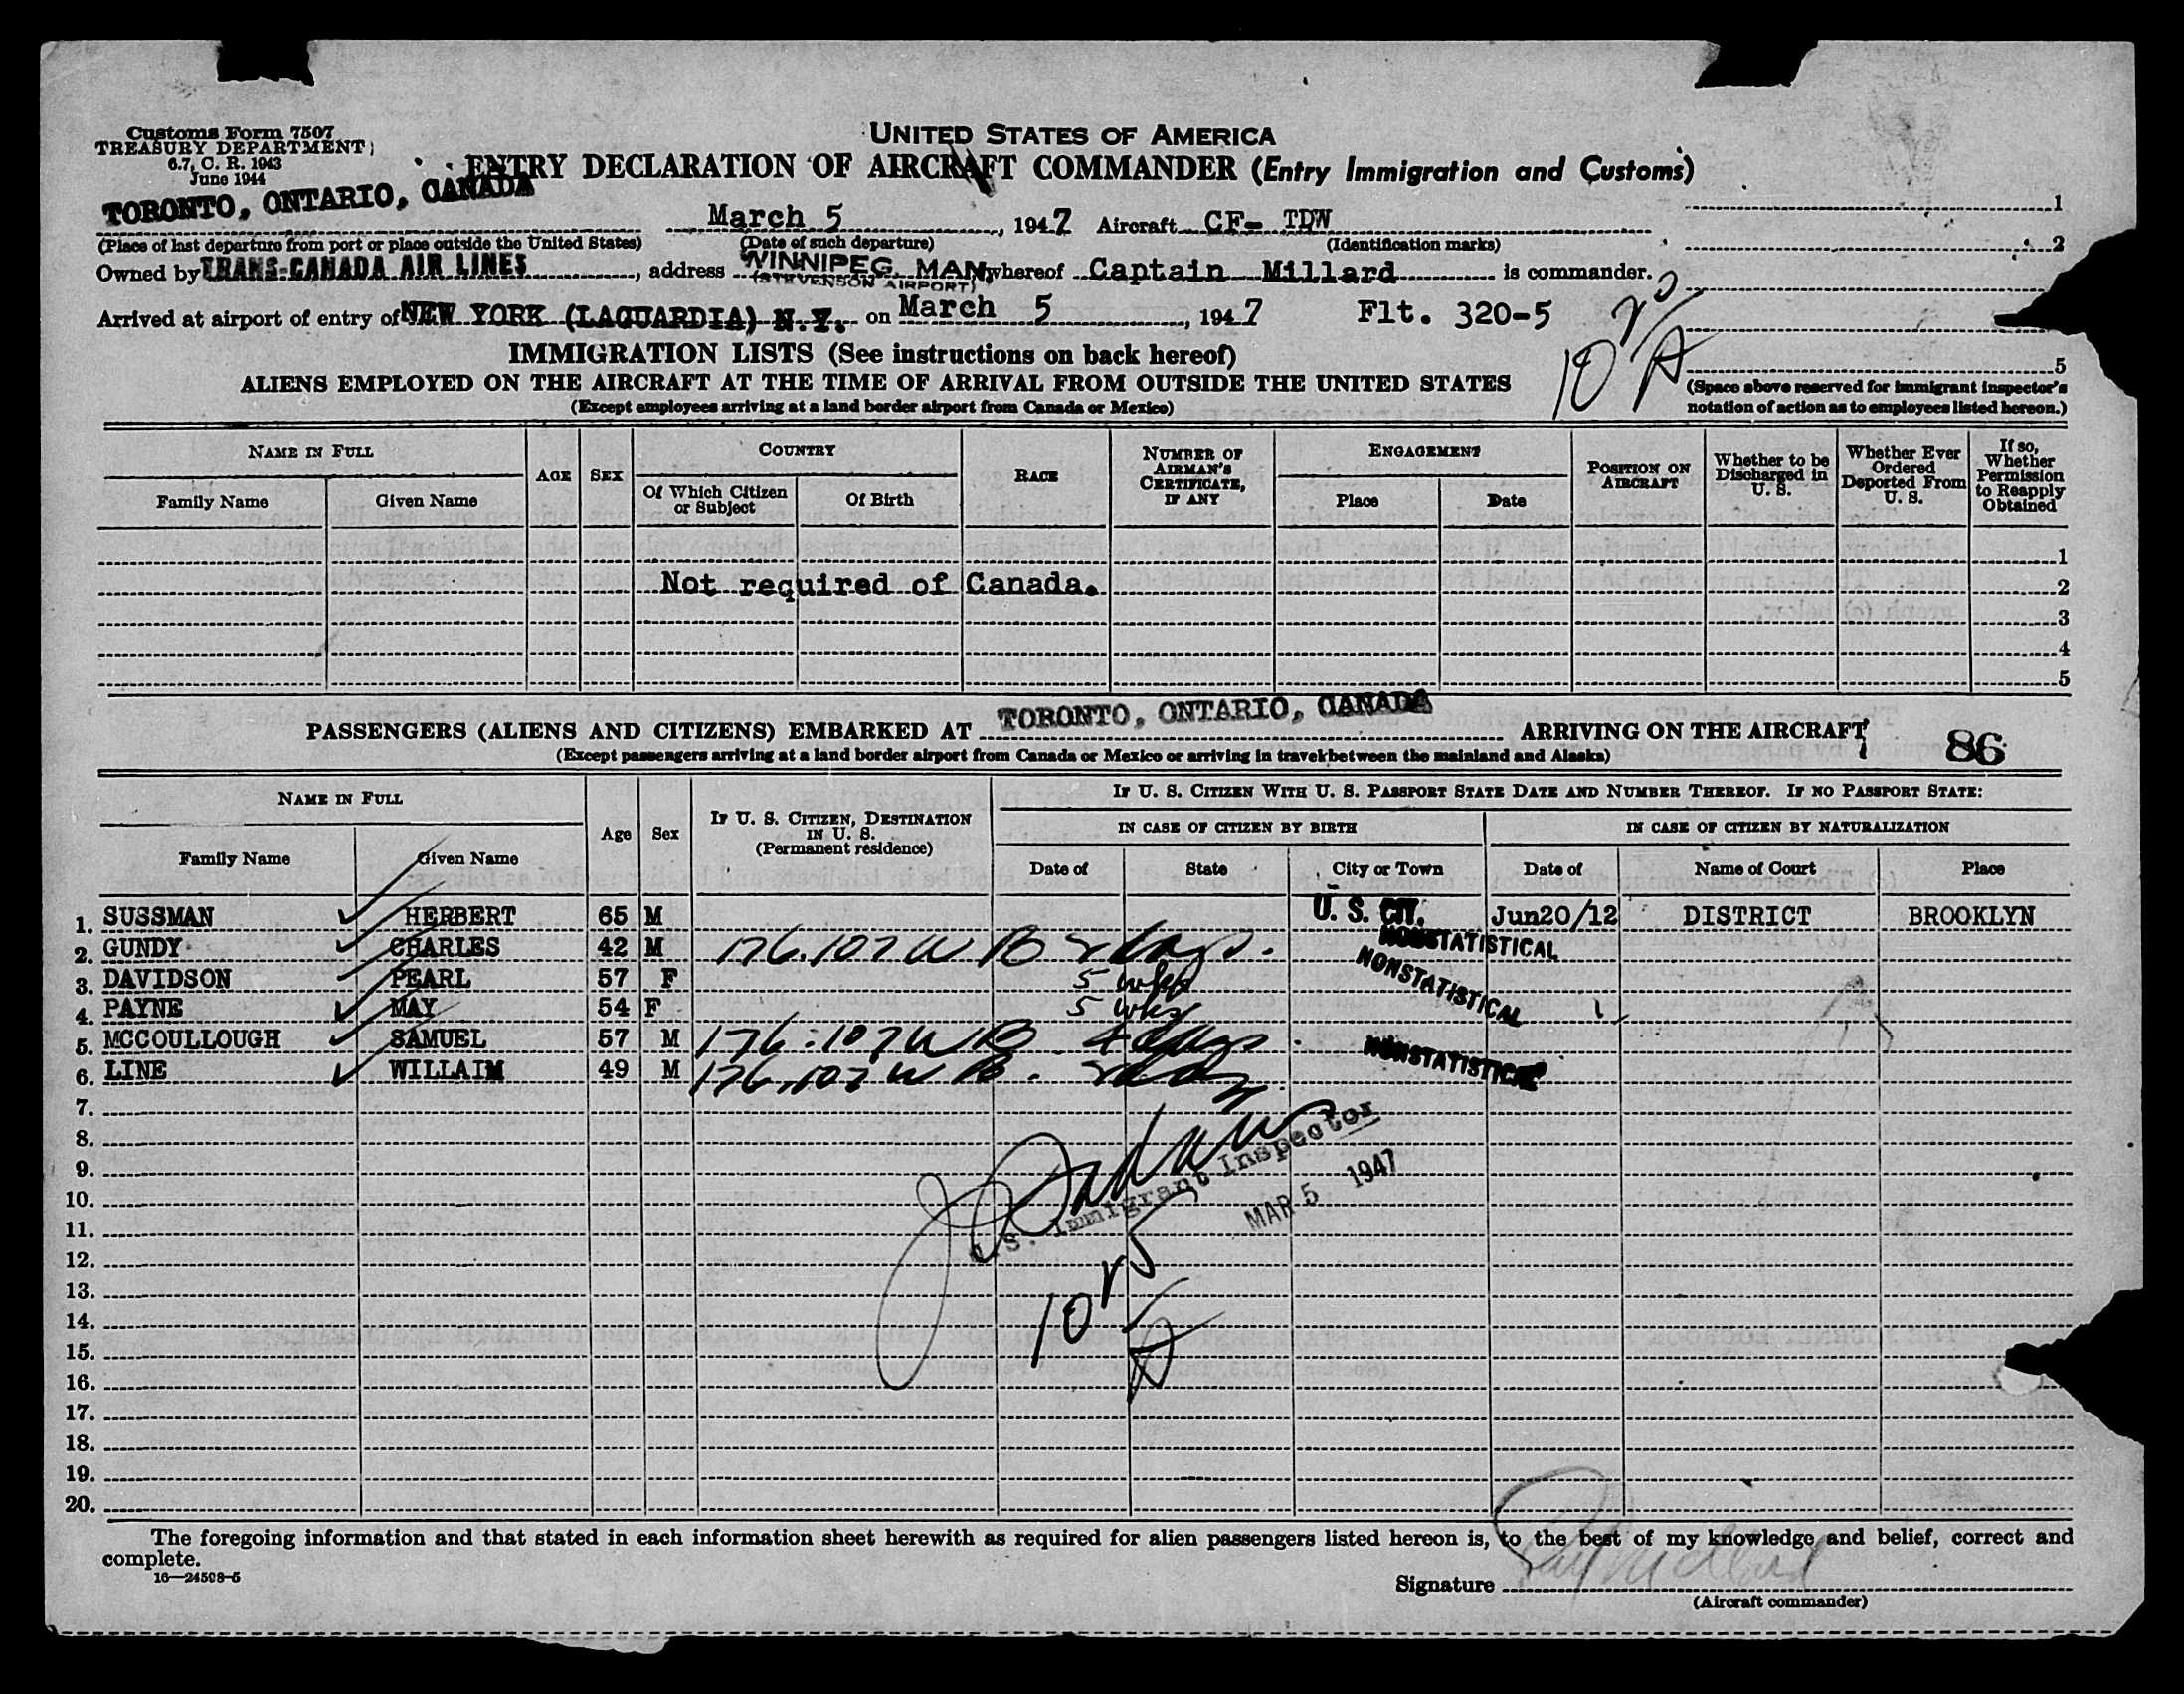 Customs Form 7507
TREASURY DEPARTMENT
6.7, C. R. 1943
June 1944
UNITED STATES OF AMERICA
ENTRY DECLARATION OF AIRCRAFT COMMANDER (Entry Immigration and Customs)
TORONTO, ONTARIO, CANADA
March 5, 1947 Aircraft CF- TDW
1
(Place of last departure from port or place outside the United States) (Date of such departure) (Identification marks)
2
Owned by TRANS-CANADA AIR LINES, address WINNIPEG, MAN, whereof Captain Millard is commander.
(STEVENSON AIRPORT)
Arrived at airport of entry of NEW YORK (LAGUARDIA) N.Y. on March 5, 1947 Flt. 320-5
10 A
5
IMMIGRATION LISTS (See instructions on back hereof)
ALIENS EMPLOYED ON THE AIRCRAFT AT THE TIME OF ARRIVAL FROM OUTSIDE THE UNITED STATES
(Space above reserved for immigrant inspector's notation of action as to employees listed hereon.)
(Except employees arriving at a land border airport from Canada or Mexico)
NAME IN FULL
Family Name
Given Name
AGE
SEX
COUNTRY
Of Which Citizen or Subject
Of Birth
RACE
NUMBER OF AIRMAN'S CERTIFICATE, IF ANY
ENGAGEMENT
Place
Date
POSITION ON AIRCRAFT
Whether to be Discharged in U. S.
Whether Ever Ordered Deported From U. S.
If so, Whether Permission to Reapply Obtained
1
Not required of Canada.
2
3
4
5
PASSENGERS (ALIENS AND CITIZENS) EMBARKED AT TORONTO, ONTARIO, CANADA ARRIVING ON THE AIRCRAFT
86
(Except passengers arriving at a land border airport from Canada or Mexico or arriving in travel between the mainland and Alaska)
NAME IN FULL
Family Name
Given Name
Age
Sex
IF U. S. CITIZEN, DESTINATION IN U. S.
(Permanent residence)
IF U. S. CITIZEN WITH U. S. PASSPORT STATE DATE AND NUMBER THEREOF. IF NO PASSPORT STATE:
IN CASE OF CITIZEN BY BIRTH
IN CASE OF CITIZEN BY NATURALIZATION
Date of
State
City or Town
Date of
Name of Court
Place
1. SUSSMAN HERBERT 65 M U. S. CIT. Jun20/12 DISTRICT BROOKLYN
2. GUNDY CHARLES 42 M 176.107 W B 2 days. NONSTATISTICAL
3. DAVIDSON PEARL 57 F 5 wks NONSTATISTICAL
4. PAYNE MAY 54 F 5 wks
5. MCCOULLOUGH SAMUEL 57 M 176.107 W B 4 days
6. LINE WILLAIM 49 M 176.107 W B. NONSTATISTICAL
7.
8.
9.
10.
11.
12.
13.
14.
15.
16.
17.
18.
19.
20.
U.S. Immigrant Inspector
MAR 5 1947
10 A
The foregoing information and that stated in each information sheet herewith as required for alien passengers listed hereon is, to the best of my knowledge and belief, correct and
complete.
16—24598-5
Signature
(Aircraft commander)